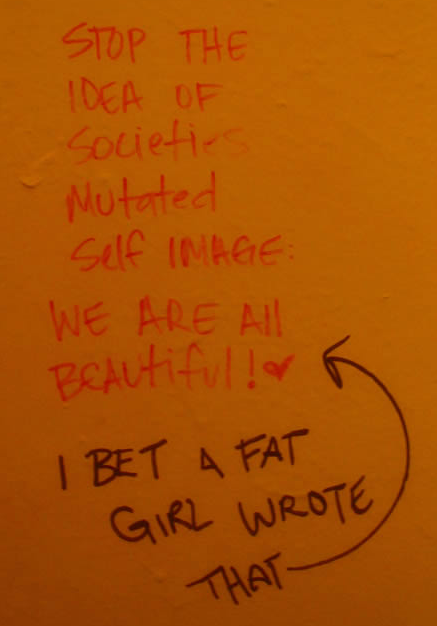 STOP THE
IDEA OF
Societies
Mutated
Self IMAGE:
WE ARE All
BEAUtiful! ♥
I BET A FAT
GIRL WROTE
THAT